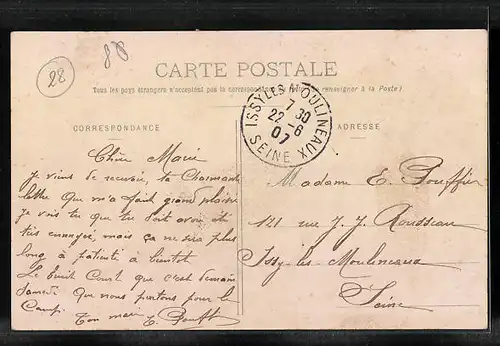 28
CARTE POSTALE
Tous les pays étrangers n'acceptent pas la correspondance au recto (se renseigner à la Poste)
ISSY LES MOULINEAUX
7 30
22 - 6
07
SEINE
CORRESPONDANCE
ADRESSE
Chère Marie
Je viens de recevoir, ta Charmante
lettre Que m'a fait grand plaisir
je vois tu que tu doit avoir été
très ennuyé, mais ça ne sera plus
long à patienté à bientôt
Le bruit Court que c'est demain
samedi Que nous partons pour le
Camp.
Ton mari E.
Madame E. Pouffier
121 rue J. J. Rousseau
Issy-les-Moulineaux
Seine